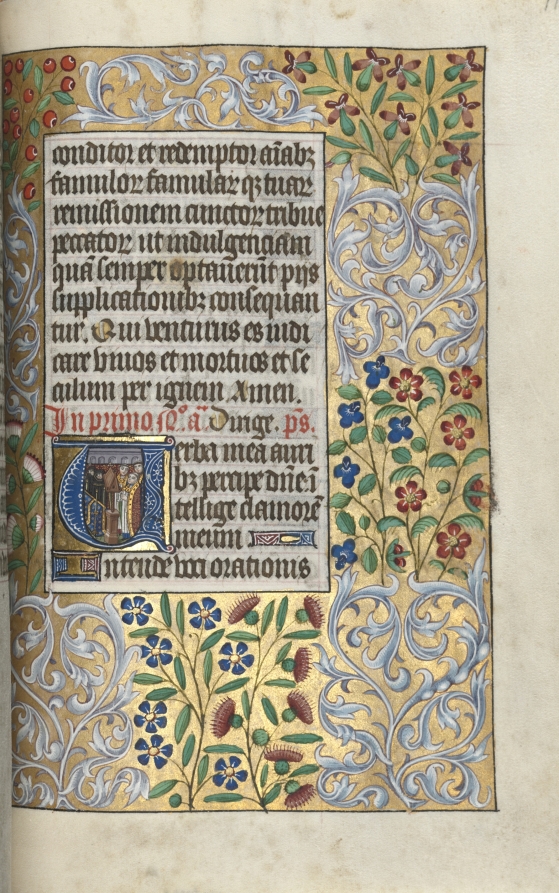 conditor et redemptor aīabꝫ
famulor famular qꝫ tuar
remissionem cunctor tribue
peccator ut indulgenciam
quā semper optauerūt pijs
supplicationibꝫ consequan
tur. Qui venturus es iudi
care viuos et mortuos et se
culum per ignem Amen.
In primo n̊. a. Dirige. p̄s.
Uerba mea auri
bꝫ percipe dn̄e ī
tellige clamorē
meum
Intende voci orationis